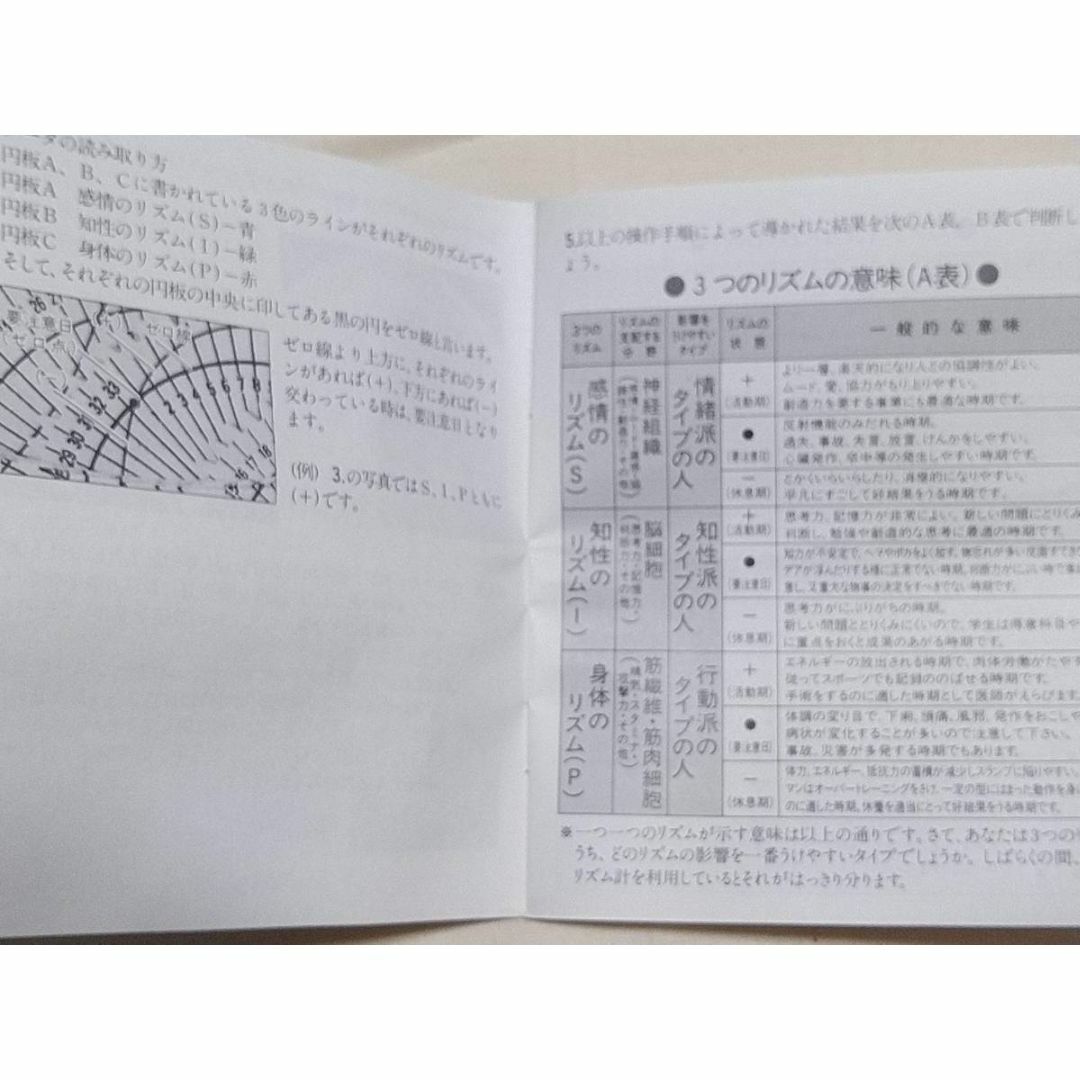 タの読み取り方
円板A、B、Cに書かれている3色のラインがそれぞれのリズムです。
円板A 感情のリズム(S)−青
円板B 知性のリズム(I)−緑
円板C 身体のリズム(P)−赤
そして、それぞれの円板の中央に印してある黒の円をゼロ線と言います。
ゼロ線より上方に、それぞれのライ
ンがあれば(+)、下方にあれば(−)
交わっている時は、要注意日となり
ます。
(例) 3.の写真ではS、I、Pともに
(+)です。
要注意日
(ゼロ点)
ゼロ線
26
28 29 30 31 32 33
1 2 3 4 5 6 7 8
16 17 18
5.以上の操作手順によって導かれた結果を次のA表。B表で判断し
ょう。
●3つのリズムの意味(A表)●
3つの
リズム
リズムの
支配する
分野
影響を
うけやすい
タイプ
リズムの
状態
一般的な意味
感情の
リズム(S)
神経組織
情緒派の
タイプの人
+
(活動期)
より一層、楽天的になり人との協調性がよい。
ムード、愛、協力がもり上りやすい。
創造力を要する事業にも最適な時期です。
●
(要注意日)
反射機能のみだれる時期。
過失、事故、失言、放言、けんかをしやすい。
心臓発作、卒中等の発生しやすい時期です。
−
(休息期)
とかくいらいらしたり、消極的になりやすい。
平凡にすごして好結果をうる時期です。
知性の
リズム(I)
脳細胞
(思考力・記憶力・
判断力・その他)
知性派の
タイプの人
+
(活動期)
思考力、記憶力が非常によい。新しい問題にとりくみ
判断し、勉強や創造的な思考に最適の時期です。
●
(要注意日)
知力が不安定で、ヘマやポカをよく起す。物忘れが多い反面すてき
デアが浮んだりする様に正常でない時期。判断力がにぶい時で事
意し、又重大な物事の決定をすべきでない時期です。
−
(休息期)
思考力がにぶりがちの時期。
新しい問題ととりくみにくいので、学生は得意科目や
に重点をおくと成果のあがる時期です。
身体の
リズム(P)
筋繊維・筋肉細胞
(精気・スタミナ・
攻撃力・その他)
行動派の
タイプの人
+
(活動期)
エネルギーの放出される時期で、肉体労働がたやす
従ってスポーツでも記録ののばせる時期です。
手術をするのに適した時期として医師がえらびます
●
(要注意日)
体調の変り目で、下痢、頭痛、風邪、発作をおこしや
病状が変化することが多いので注意して下さい。
事故、災害が多発する時期でもあります。
−
(休息期)
体力、エネルギー、抵抗力の蓄積が減少しスランプに陥りやすい。
マンはオーバートレーニングをさけ、一定の型にはまった動作を身に
のに適した時期。休養を適当にとって好結果をうる時期です。
※一つ一つのリズムが示す意味は以上の通りです。さて、あなたは3つのリ
うち、どのリズムの影響を一番うけやすいタイプでしょうか。しばらくの間、
リズム計を利用しているとそれがはっきり分ります。